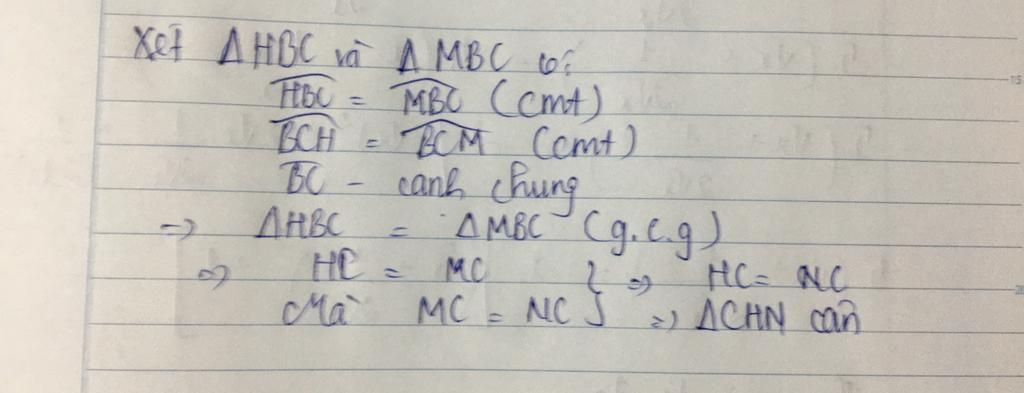 Xét ΔHBC và ΔMBC có:
HBC = MBC (cmt)
BCH = BCM (cmt)
BC - cạnh chung
=> ΔHBC = ΔMBC (g.c.g)
=> HC = MC } => HC = NC
Mà MC = NC } => ΔCHN cân
15